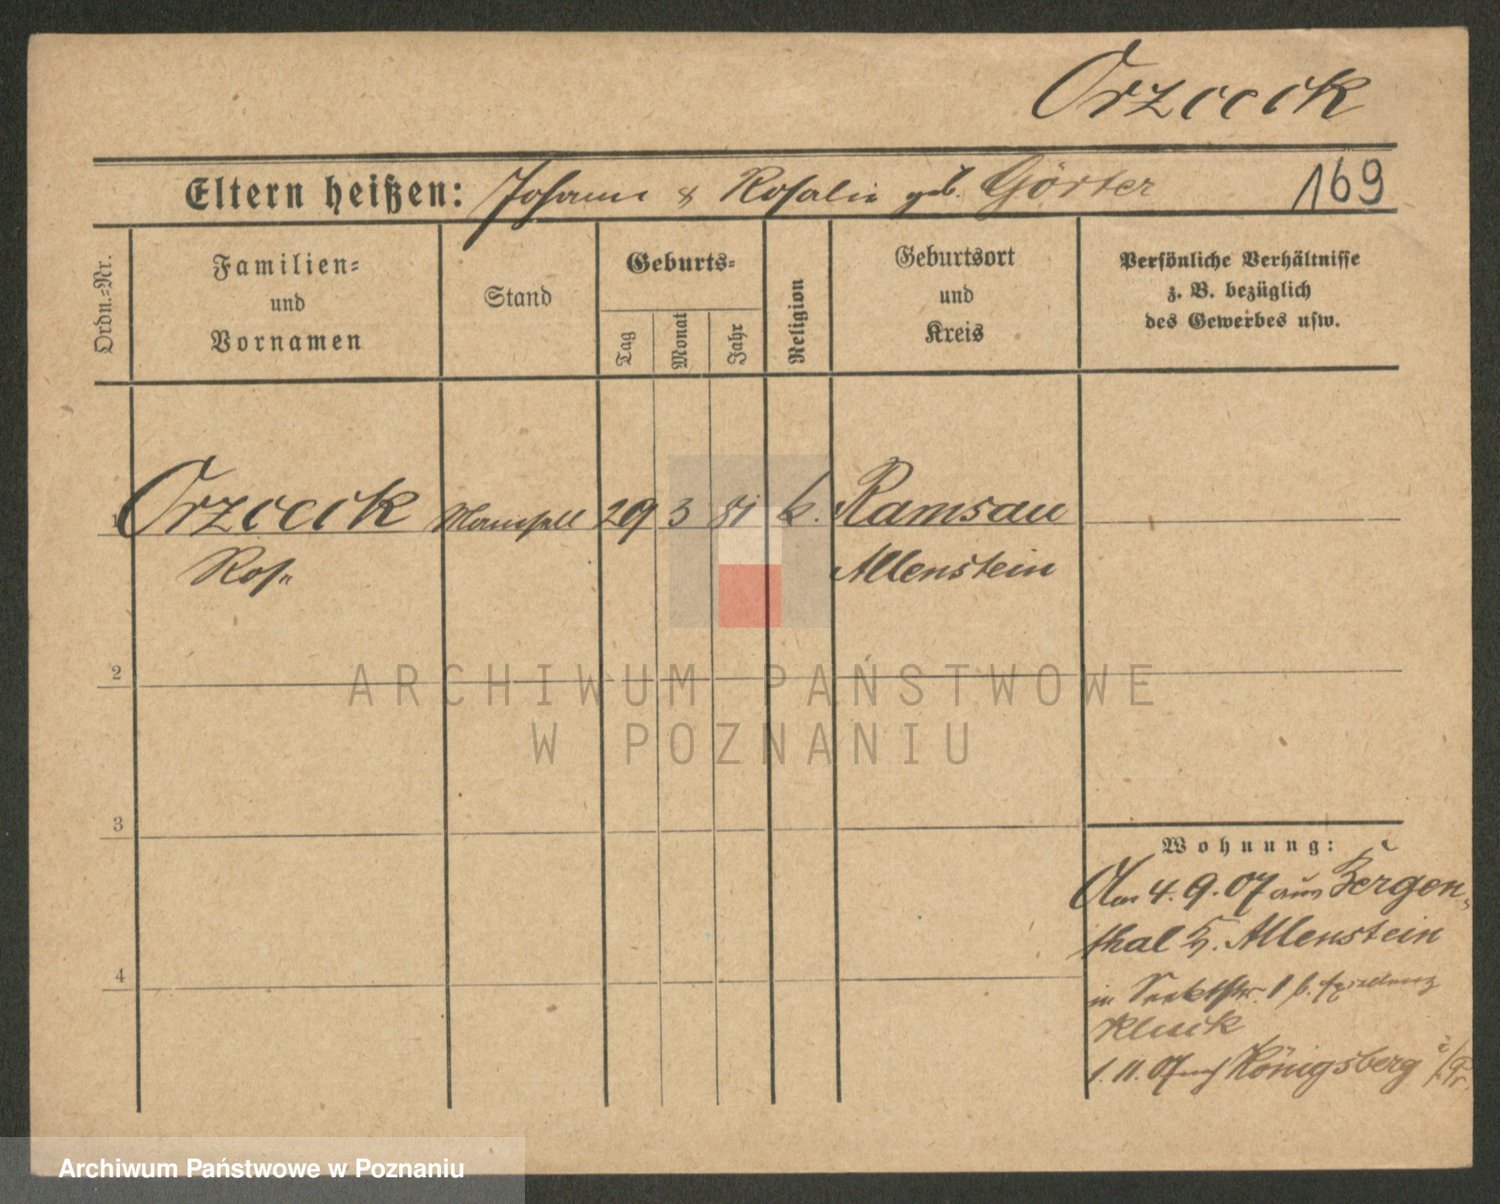 Orzeck
Eltern heißen: Johann & Rosalie geb. Görter
169
Ordn.=Nr.
Familien=
und
Vornamen
Stand
Geburts=
Tag
Monat
Jahr
Religion
Geburtsort
und
Kreis
Persönliche Verhältnisse
z. B. bezüglich
des Gewerbes usw.
1 Orzeck Mamsell 29 3 81 k. Ramsau
Rosa Allenstein
2
3
4
Wohnung:
Am 4.9.07 aus Bergen-
thal K. Allenstein
in 1 b.
Kluck
1.11.07 nach Königsberg i/Pr.
ARCHIWUM PAŃSTWOWE
W POZNANIU
Archiwum Państwowe w Poznaniu